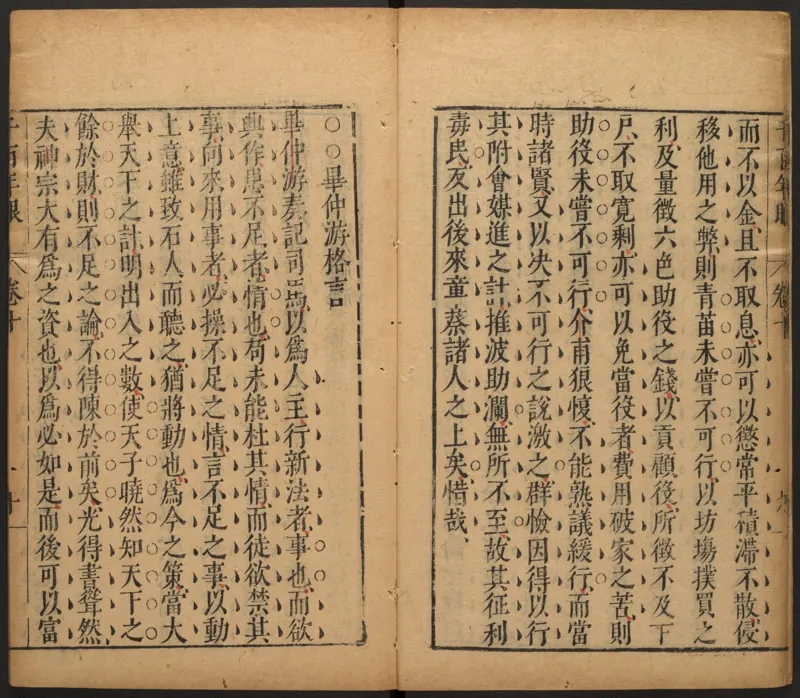 而不以金且不取息亦可以懲常平積滯不散侵
移他用之弊則青苗未嘗不可行以坊塲撲買之
利及量徵六色助役之錢以貢顧後所徵不及下
戸不取寛剩亦可以免當役者費用破家之苦則
助役未嘗不可行介甫狠愎不能熟議緩行而當
時諸賢又以决不可行之說激之群憸因得以行
其附會媒進之計推波助瀾無所不至故其征利
毒民反出後來童蔡諸人之上矣惜哉
○○畢仲游格言
畢仲游奏記司馬以爲人主行新法者事也而欲
與作患不足者情也苟未能杜其情而徒欲禁其
事向來用事者必操不足之情言不足之事以動
上意雖致石人而聽之猶將動也爲今之策當大
舉天下之計明出入之數使天子曉然知天下之
餘於財則不足之論不得陳於前矣光得書聳然
夫神宗大有爲之資也以爲必如是而後可以富
千百年眼
卷十
十